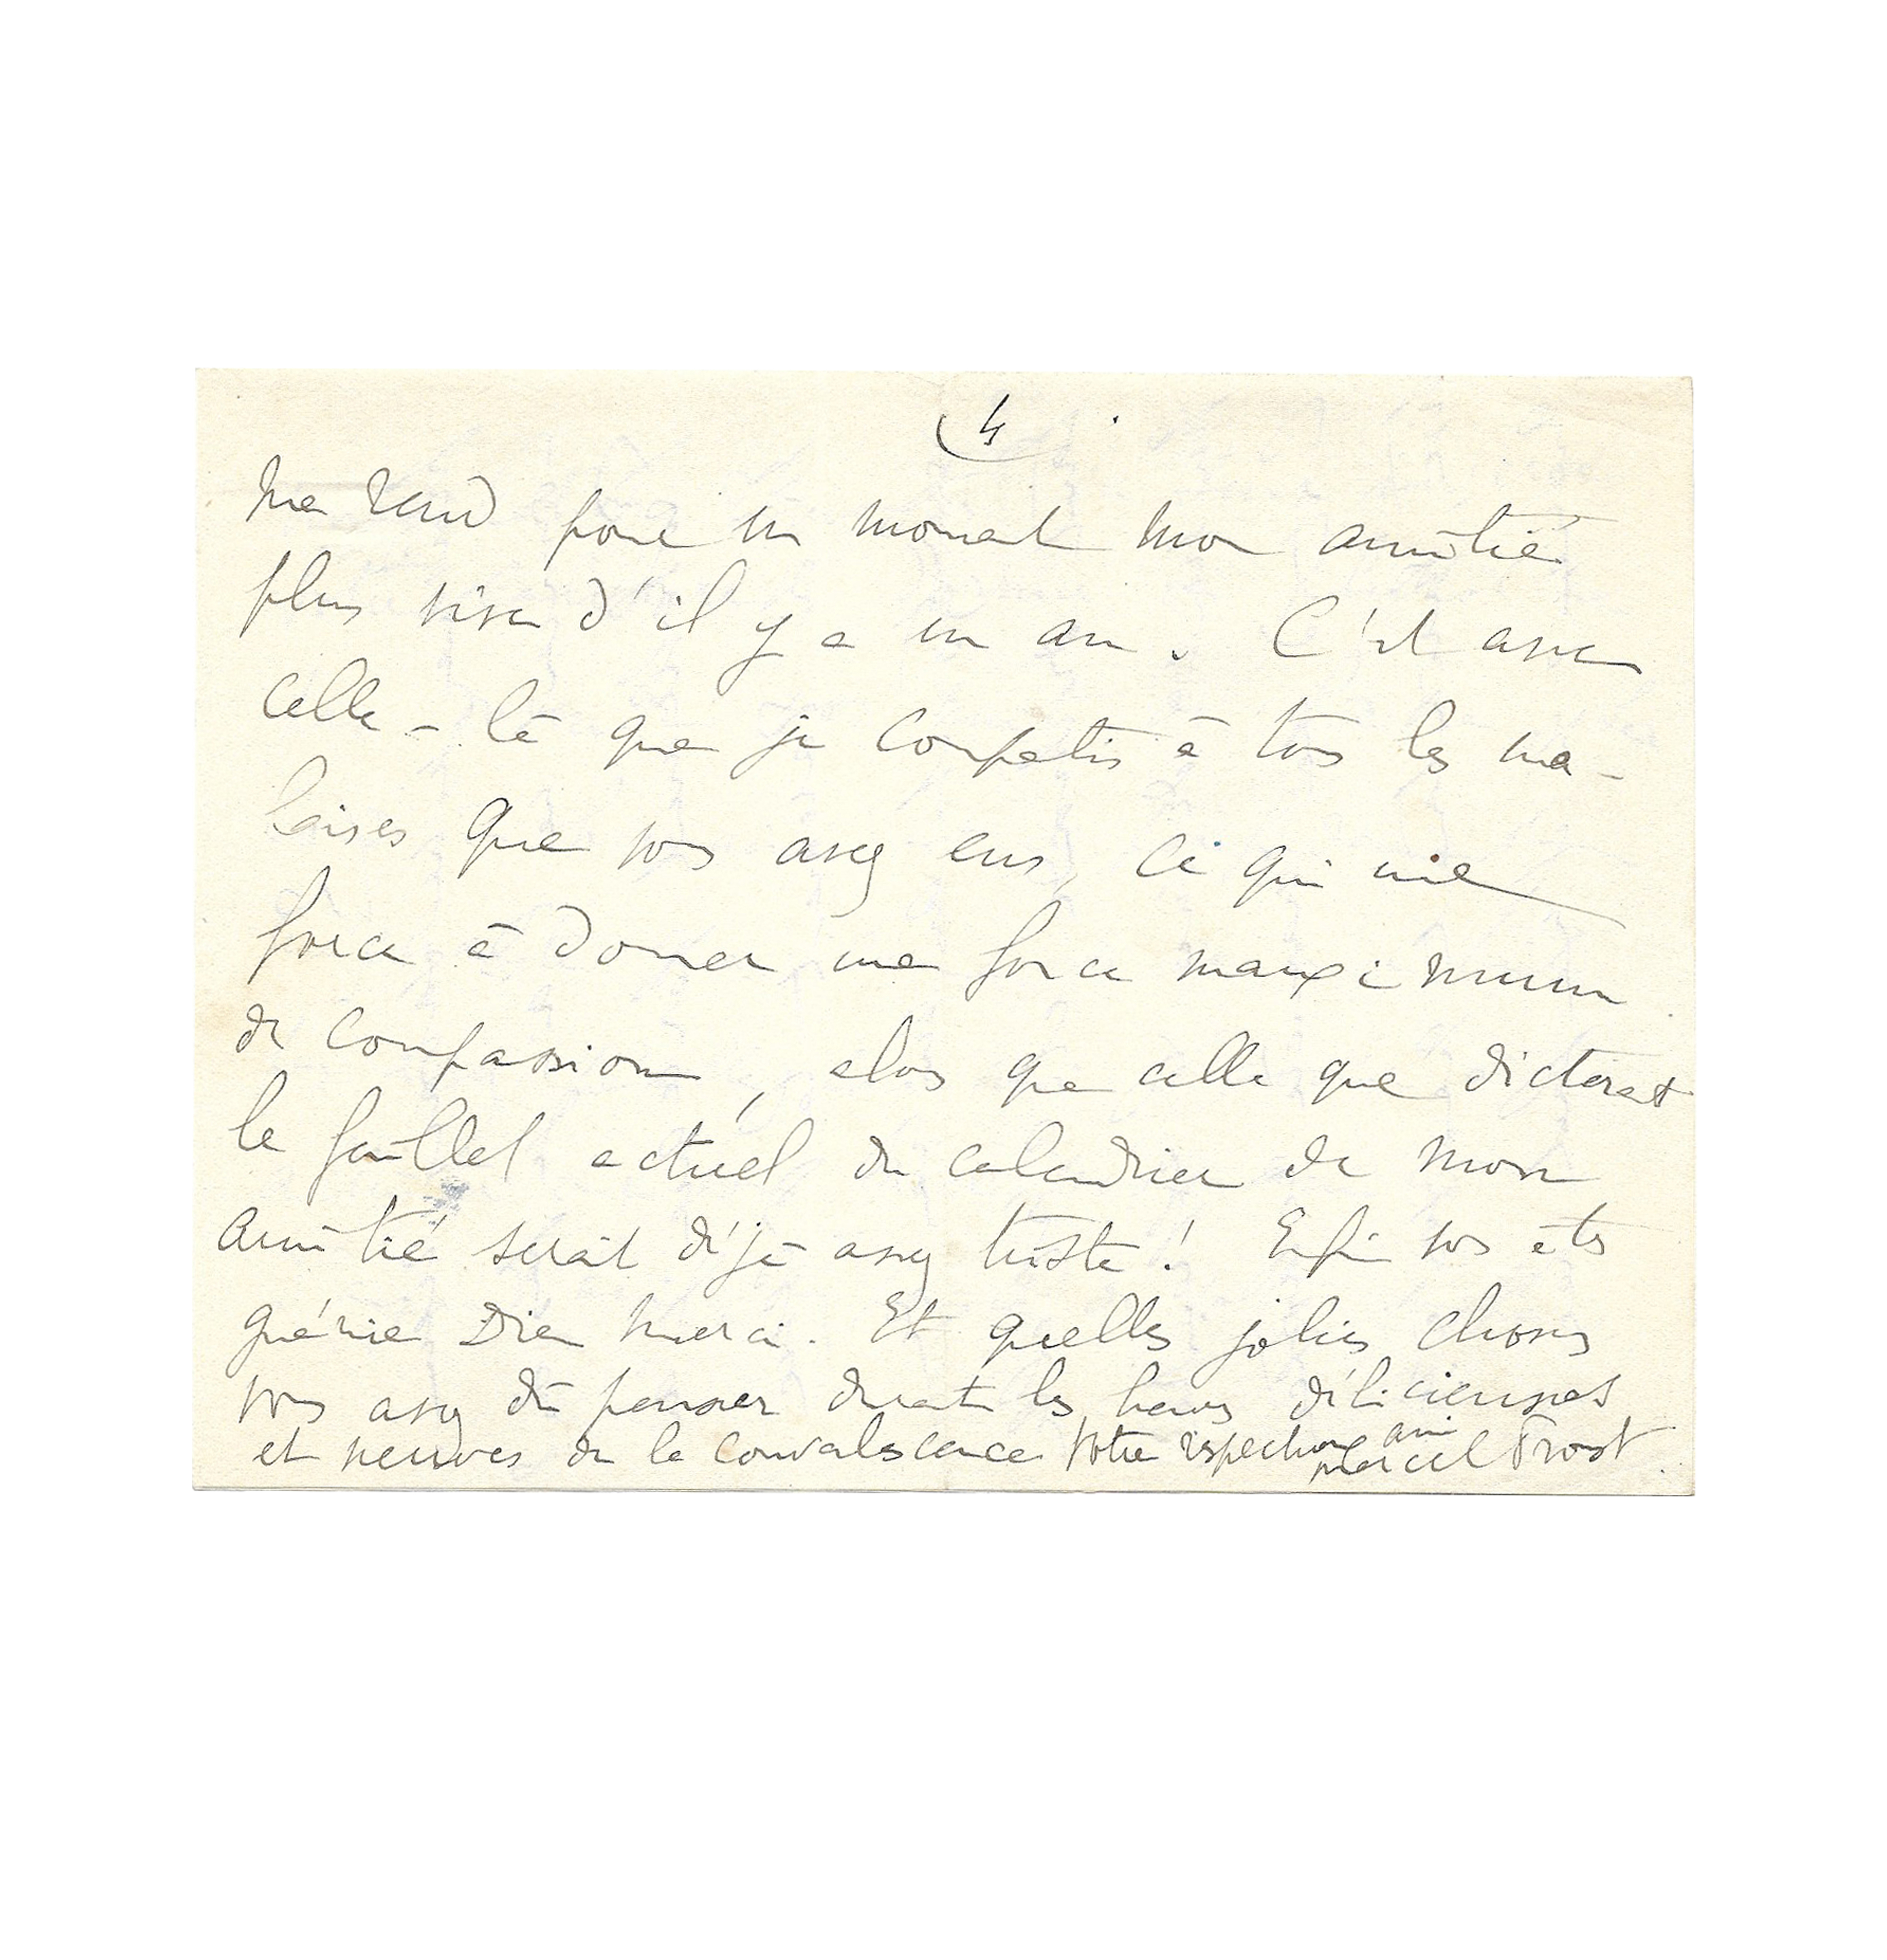 4
me rend pour un moment mon amitié
plus vive d'il y a un an. C'est avec
celle-là que je compatis à tous les ma-
laises que vous avez eus, ce qui me
force à donner une force maximum
de compassion, alors que celle que dicterait
le feuillet actuel du calendrier de mon
amitié serait déjà assez triste ! Enfin vous êtes
guérie Dieu merci. Et quelles jolies choses
vous avez dû penser durant les heures délicieuses
et neuves de la convalescence. Votre respectueux ami
Marcel Proust